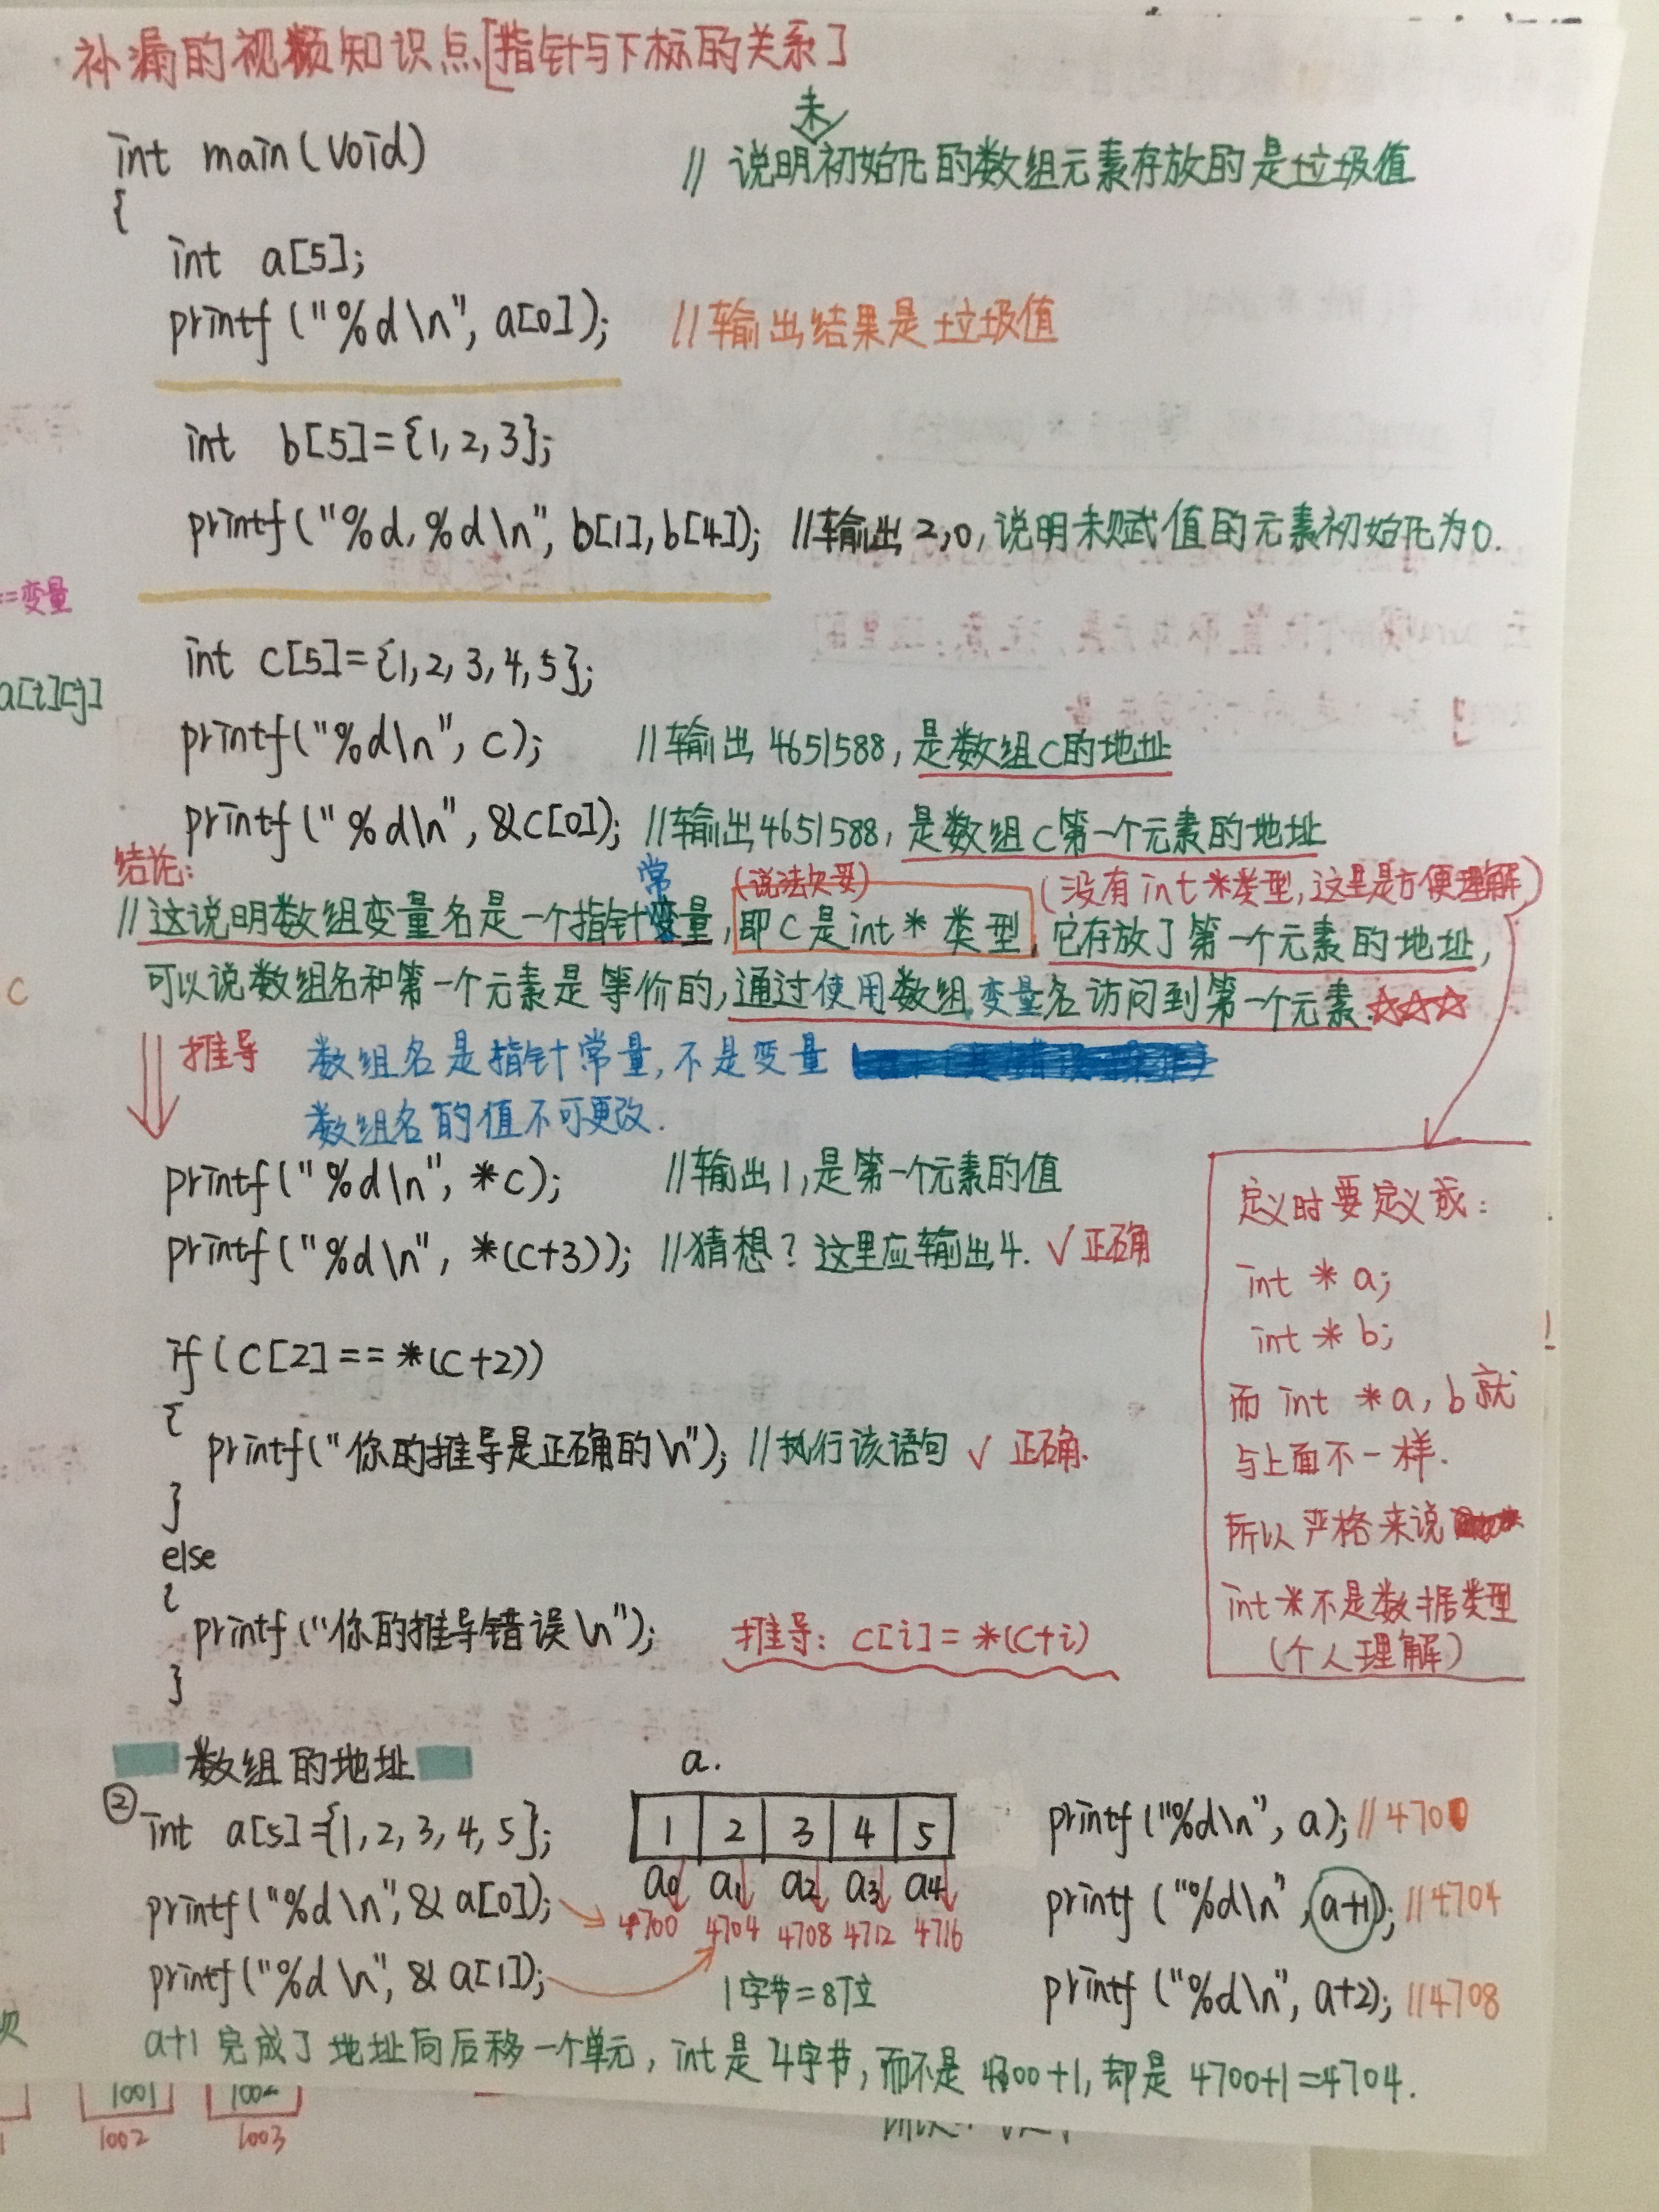 补漏的视频知识点[指针与下标的关系]
未
int main(void) // 说明初始化的数组元素存放的是垃圾值
{
int a[5];
printf("%d\n", a[0]); //输出结果是垃圾值
int b[5]={1,2,3};
printf("%d,%d\n", b[1],b[4]); //输出2,0,说明未赋值的元素初始化为0.
==变量
int c[5]={1,2,3,4,5};
a[i][j]
printf("%d\n", c); //输出4651588,是数组c的地址
printf("%d\n", &c[0]); //输出4651588,是数组c第一个元素的地址
结论: 常 (说法欠妥) (没有int*类型,这里是方便理解)
//这说明数组变量名是一个指针变量,即c是int*类型,它存放了第一个元素的地址,
c
可以说数组名和第一个元素是等价的,通过使用数组变量名访问到第一个元素.☆☆☆
推导 数组名是指针常量,不是变量
数组名的值不可更改.
printf("%d\n", *c); //输出1,是第一个元素的值
printf("%d\n", *(c+3)); //猜想?这里应输出4. √正确
if(c[2]==*(c+2))
{
printf("你的推导是正确的\n"); //执行该语句 √ 正确.
}
else
{
printf("你的推导错误\n"); 推导: c[i]=*(c+i)
}
定义时要定义成:
int *a;
int *b;
而 int *a,b就
与上面不一样.
所以严格来说
int*不是数据类型
(个人理解)
数组的地址
② int a[5]={1,2,3,4,5};
printf("%d\n",&a[0]);
printf("%d\n",&a[1]);
a.
1 2 3 4 5
a0 a1 a2 a3 a4
4700 4704 4708 4712 4716
1字节=8位
printf("%d\n", a); //4700
printf("%d\n",a+1); //4704
printf("%d\n", a+2); //4708
a+1 完成了地址向后移一个单元,int是4字节,而不是4700+1,却是4700+1=4704.
1001 1002
1002 1003